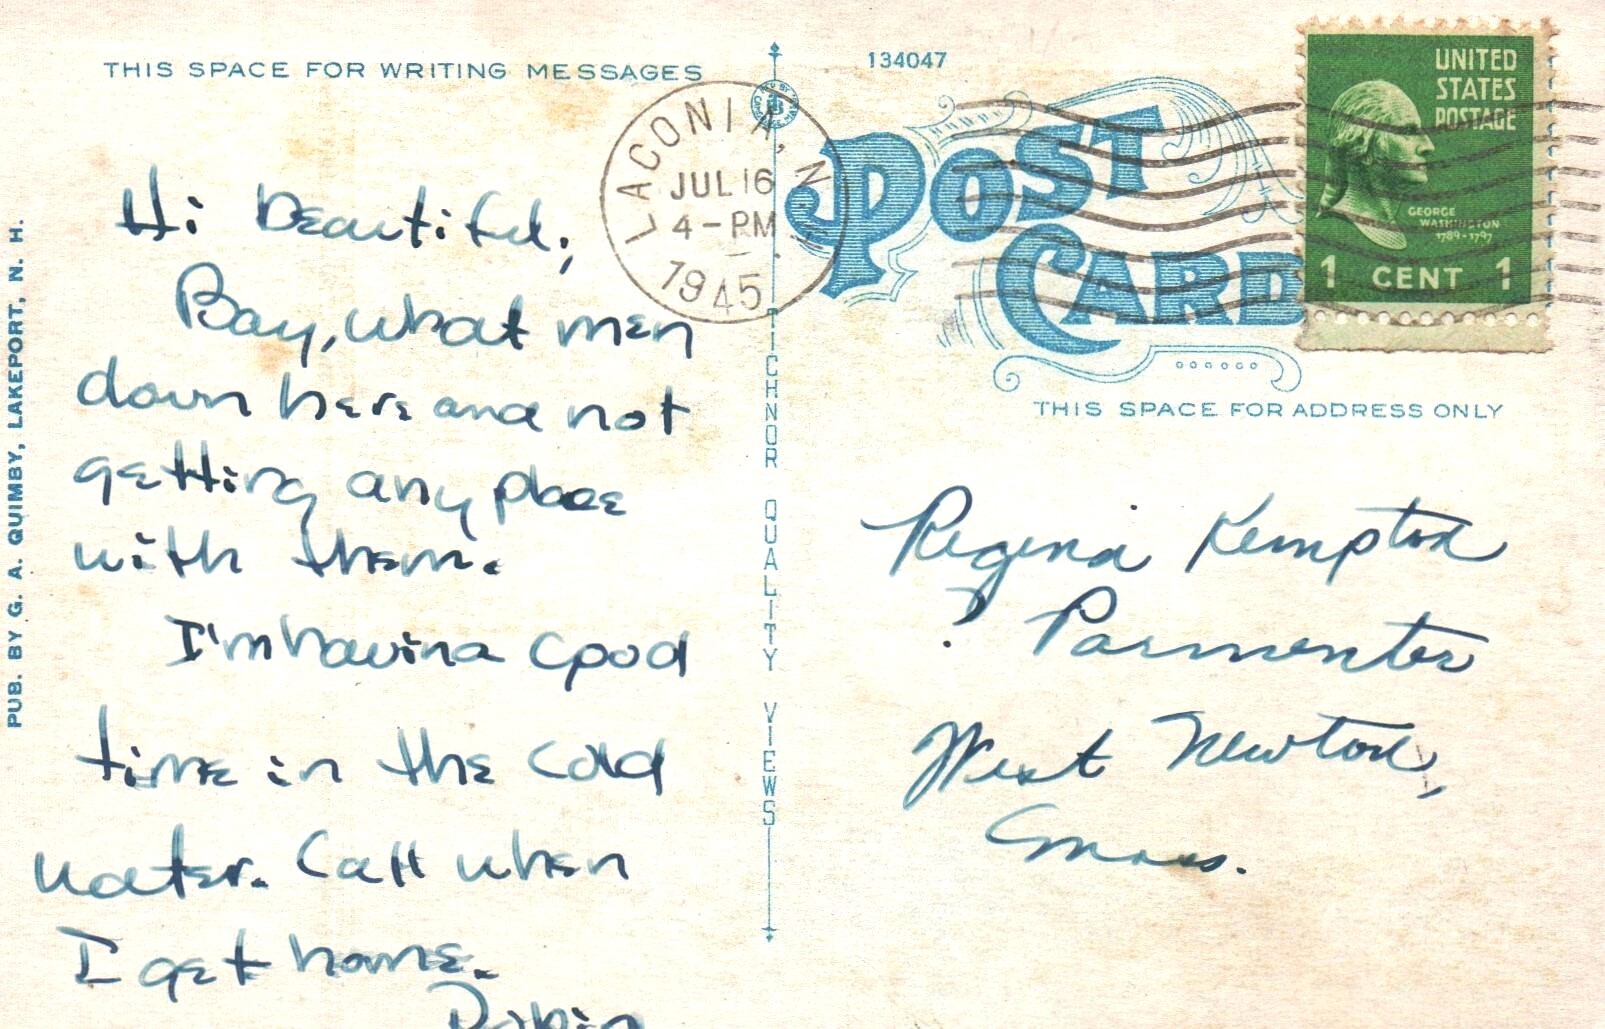 THIS SPACE FOR WRITING MESSAGES
134047
LACONIA, N
JUL 16
4-PM
1945
UNITED
STATES
POSTAGE
GEORGE
WASHINGTON
1789-1797
1 CENT 1
POST
CARD
THIS SPACE FOR ADDRESS ONLY
PUB. BY G. A. QUIMBY, LAKEPORT, N. H.
TICHNOR QUALITY VIEWS
Hi Beautiful,
Boy, what men
down here and not
getting any place
with them.
I'm having a good
time in the cold
water. Call when
I get home.
Robin
Regina Kempton
? Parmenter
West Newton,
Mass.